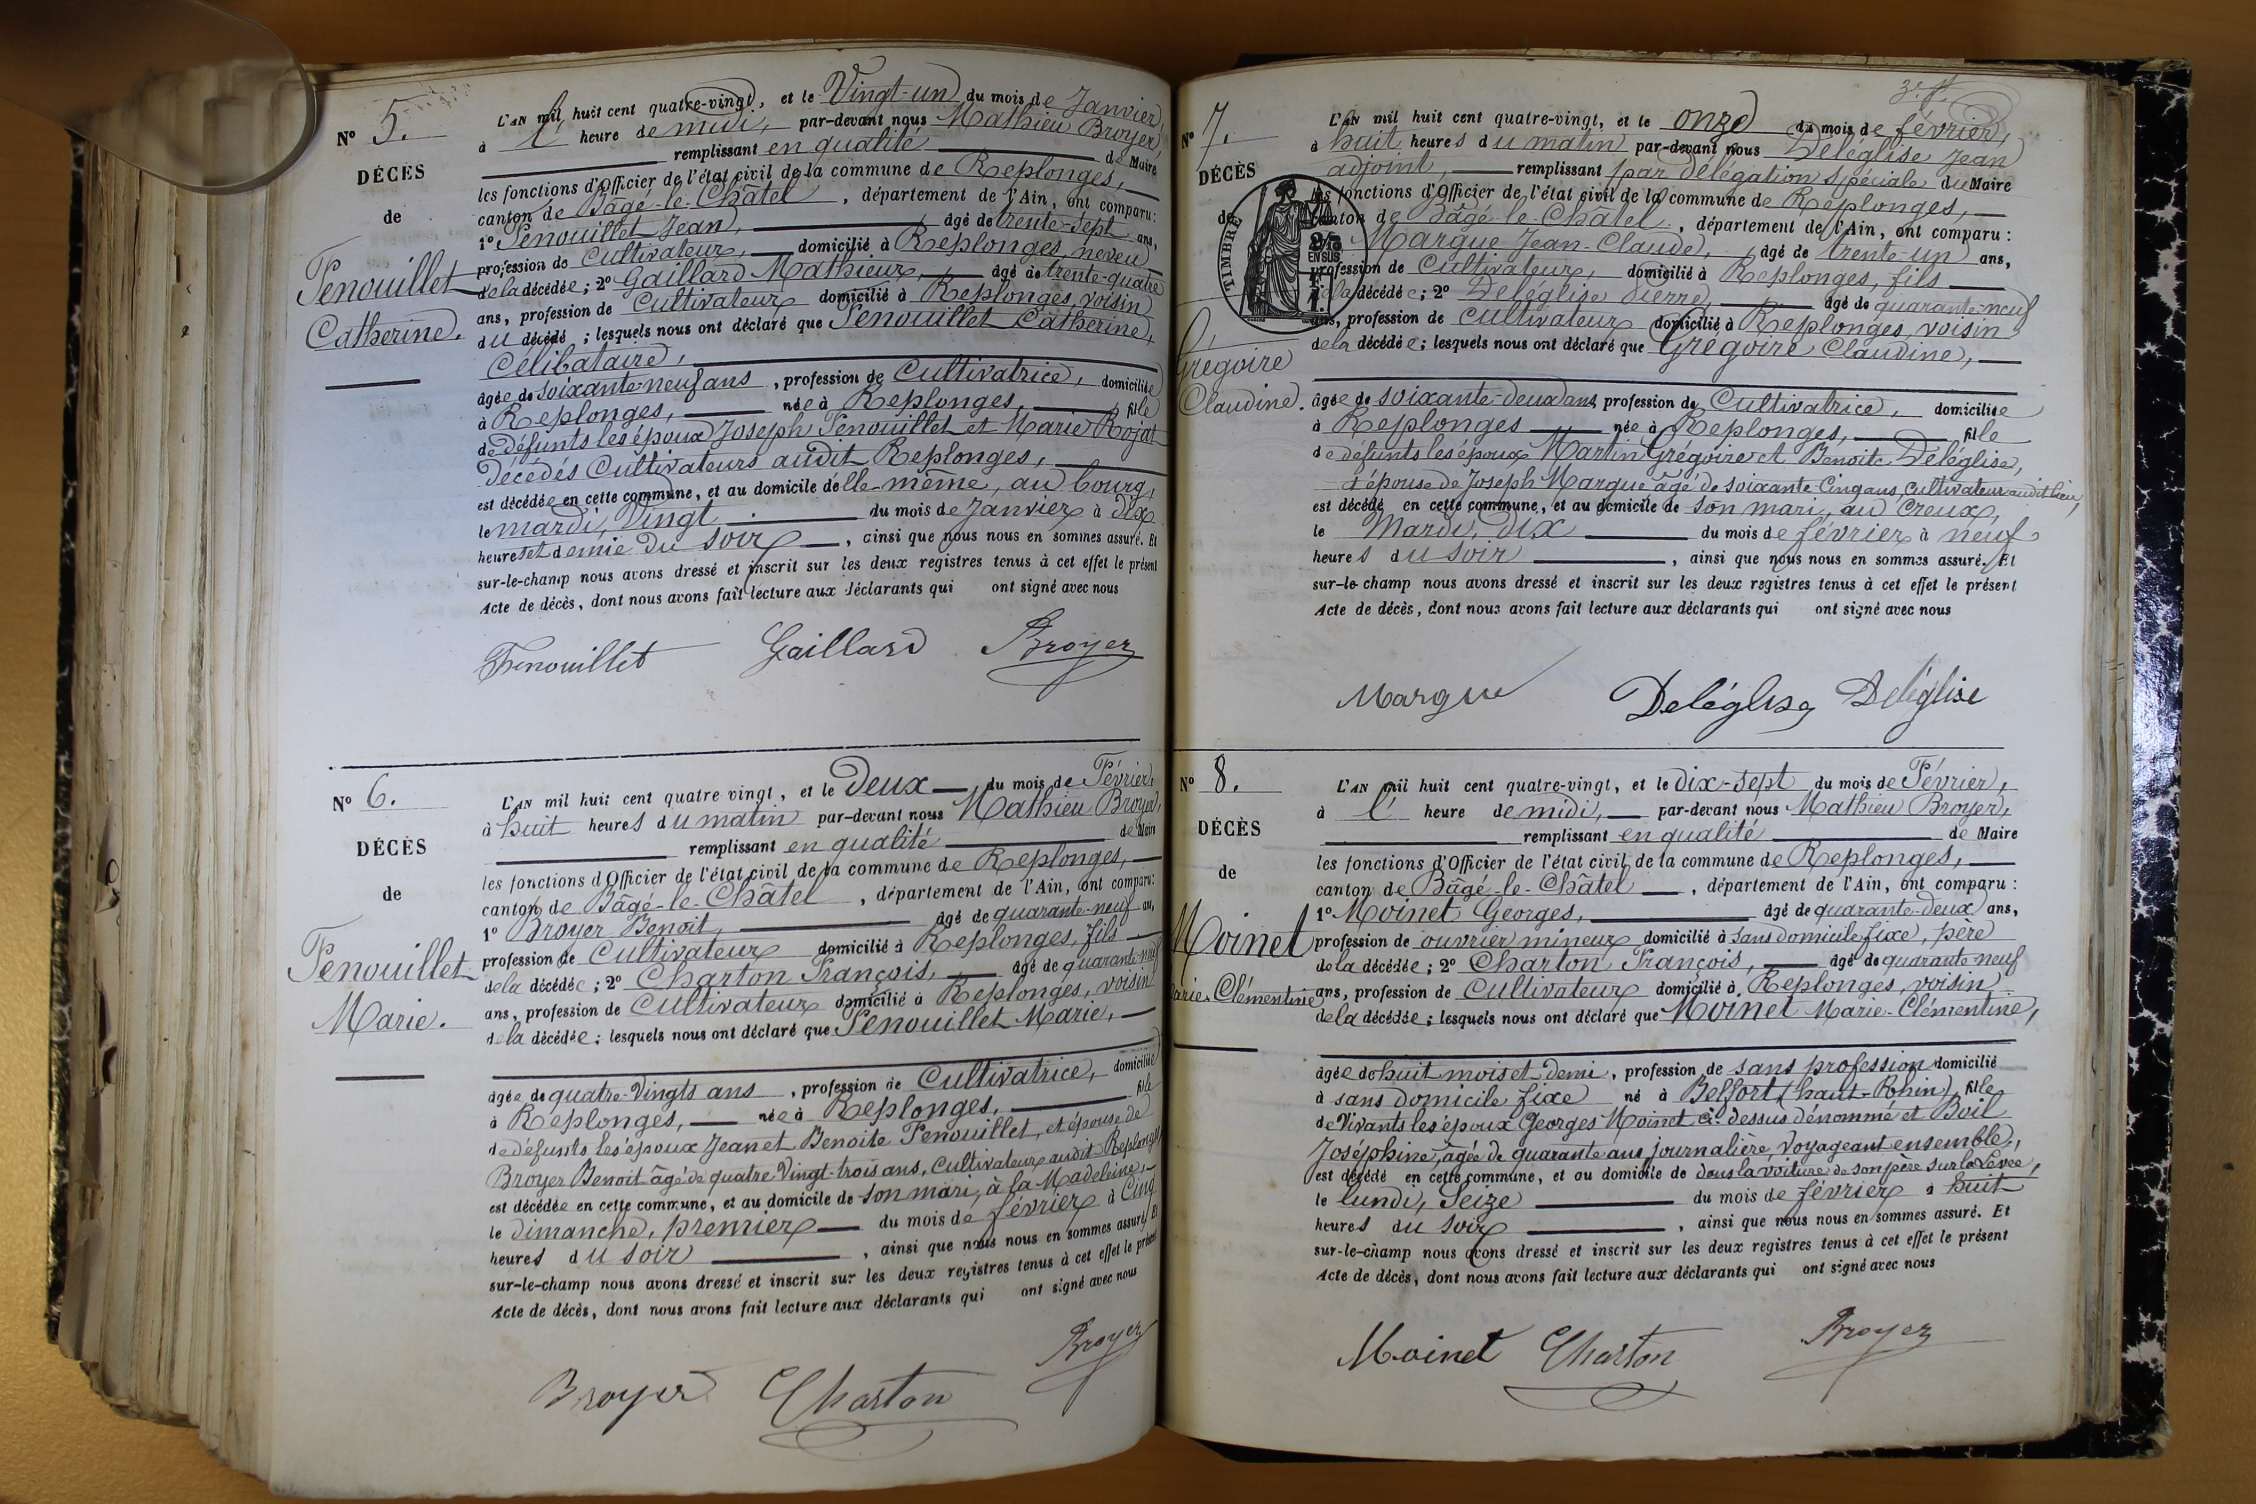 N° 5.
DÉCÈS
de
Fenouillet
Catherine.
L'AN mil huit cent quatre-vingt, et le Vingt-un du mois de Janvier,
à l' heure de midi, par-devant nous Mathieu Broyer,
remplissant en qualité de Maire
les fonctions d'Officier de l'état civil de la commune de Replonges,
canton de Bâgé-le-Châtel, département de l'Ain, ont comparu :
1° Fenouillet Jean, âgé de trente-sept ans,
profession de Cultivateur, domicilié à Replonges, neveu
de la décédée ; 2° Gaillard Mathieu, âgé de trente-quatre
ans, profession de Cultivateur domicilié à Replonges, voisin
du décédé ; lesquels nous ont déclaré que Fenouillet Catherine,
Célibataire,
âgée de soixante-neuf ans, profession de Cultivatrice, domiciliée
à Replonges, née à Replonges, fille
de défunts les époux Joseph Fenouillet et Marie Rojat
décédés Cultivateurs audit Replonges,
est décédée en cette commune, et au domicile d'elle-même, au bourg,
le mardi, Vingt du mois de Janvier à dix
heures et demie du soir, ainsi que nous nous en sommes assuré. Et
sur-le-champ nous avons dressé et inscrit sur les deux registres tenus à cet effet le présent
Acte de décès, dont nous avons fait lecture aux déclarants qui ont signé avec nous
Fenouillet Gaillard Broyer
N° 6.
DÉCÈS
de
Fenouillet
Marie.
L'AN mil huit cent quatre vingt, et le Deux du mois de Février,
à huit heures du matin par-devant nous Mathieu Broyer,
remplissant en qualité de Maire
les fonctions d'Officier de l'état civil de la commune de Replonges,
canton de Bâgé-le-Châtel, département de l'Ain, ont comparu :
1° Broyer Benoit, âgé de quarante-neuf ans,
profession de Cultivateur domicilié à Replonges, fils
de la décédée ; 2° Charton François, âgé de quarante-neuf
ans, profession de Cultivateur domicilié à Replonges, voisin
de la décédée ; lesquels nous ont déclaré que Fenouillet Marie,
âgée de quatre-Vingts ans, profession de Cultivatrice, domiciliée
à Replonges, née à Replonges, fille
de défunts les époux Jean et Benoite Fenouillet, et épouse de
Broyer Benoit âgé de quatre-Vingt-trois ans, Cultivateur audit Replonges
est décédée en cette commune, et au domicile de son mari, à la Madeleine,
le dimanche, premier du mois de février à Cinq
heures du soir, ainsi que nous nous en sommes assuré. Et
sur-le-champ nous avons dressé et inscrit sur les deux registres tenus à cet effet le présent
Acte de décès, dont nous avons fait lecture aux déclarants qui ont signé avec nous
Broyer Charton Broyer
3e ft.
N° 7.
DÉCÈS
de
TIMBRE
2/10
EN SUS
Grégoire
Claudine.
L'AN mil huit cent quatre-vingt, et le onze du mois de février,
à huit heures du matin par-devant nous Deléglise Jean
adjoint, remplissant par délégation spéciale du Maire
les fonctions d'Officier de l'état civil de la commune de Replonges,
canton de Bâgé-le-Châtel, département de l'Ain, ont comparu :
Margue Jean-Claude, âgé de trente-un ans,
profession de Cultivateur, domicilié à Replonges, fils
de la décédée ; 2° Deléglise Pierre, âgé de quarante-neuf
ans, profession de Cultivateur domicilié à Replonges, voisin
de la décédée ; lesquels nous ont déclaré que Grégoire Claudine,
âgée de soixante-deux ans, profession de Cultivatrice, domiciliée
à Replonges née à Replonges, fille
de défunts les époux Martin Grégoire et Benoite Deléglise,
et épouse de Joseph Margue âgé de soixante-Cinq ans, Cultivateur audit lieu,
est décédé en cette commune, et au domicile de son mari, au Creux,
le Mardi, dix du mois de février à neuf
heures du soir, ainsi que nous nous en sommes assuré. Et
sur-le-champ nous avons dressé et inscrit sur les deux registres tenus à cet effet le présent
Acte de décès, dont nous avons fait lecture aux déclarants qui ont signé avec nous
Margue Deléglise Deléglise
N° 8.
DÉCÈS
de
Moinet
Marie-Clémentine
L'AN mil huit cent quatre-vingt, et le dix-sept du mois de Février,
à l' heure de midi, par-devant nous Mathieu Broyer,
remplissant en qualité de Maire
les fonctions d'Officier de l'état civil de la commune de Replonges,
canton de Bâgé-le-Châtel, département de l'Ain, ont comparu :
1° Moinet Georges, âgé de quarante-deux ans,
profession de ouvrier mineur domicilié à sans domicile fixe, père
de la décédée ; 2° Charton François, âgé de quarante-neuf
ans, profession de Cultivateur domicilié à Replonges, voisin
de la décédée ; lesquels nous ont déclaré que Moinet Marie-Clémentine,
âgée de huit mois et demi, profession de sans profession domicilié
à sans domicile fixe né à Belfort (haut-Rhin), fille
de Vivants les époux Georges Moinet ci-dessus dénommé et Boil
Joséphine, âgée de quarante ans journalière, voyageant ensemble,
est décédé en cette commune, et au domicile de dans la voiture de son père sur la Levée,
le lundi, Seize du mois de février à huit
heures du soir, ainsi que nous nous en sommes assuré. Et
sur-le-champ nous avons dressé et inscrit sur les deux registres tenus à cet effet le présent
Acte de décès, dont nous avons fait lecture aux déclarants qui ont signé avec nous
Moinet Charton Broyer